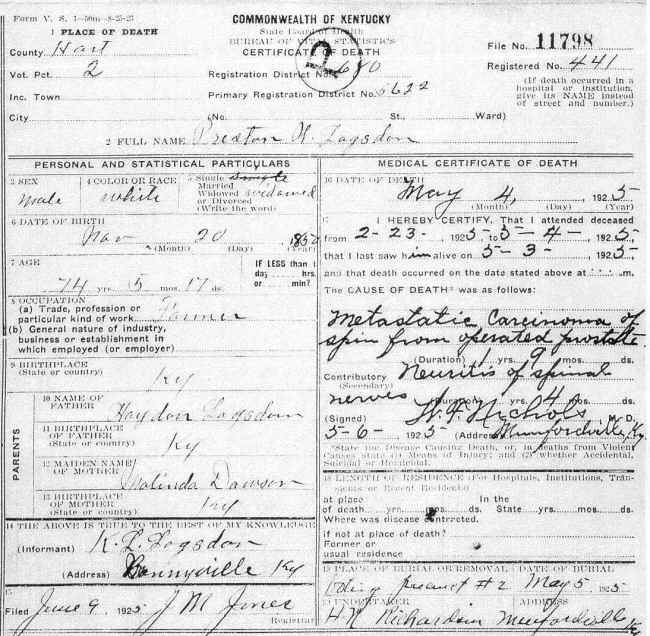 Form V. S. 1—50m—8-25-23
COMMONWEALTH OF KENTUCKY
State Board of Health
BUREAU OF VITAL STATISTICS
CERTIFICATE OF DEATH
1 PLACE OF DEATH
County Hart
Vot. Pct. 2
Inc. Town
City (No. St., Ward)
Registration District No. 680
Primary Registration District No. 5622
2
File No. 11798
Registered No. 441
(If death occurred in a
hospital or institution,
give its NAME instead
of street and number.)
2 FULL NAME Preston W. Logsdon
PERSONAL AND STATISTICAL PARTICULARS
3 SEX
male
4 COLOR OR RACE
white
5 Single
Married
Widowed
or Divorced
(Write the word)
widowed
6 DATE OF BIRTH
Nov 20 1850
(Month) (Day) (Year)
7 AGE
74 yrs. 5 mos. 17 ds.
IF LESS than 1
day, hrs.
or min.?
8 OCCUPATION
(a) Trade, profession or
particular kind of work Farmer
(b) General nature of industry,
business or establishment in
which employed (or employer)
9 BIRTHPLACE
(State or country)
Ky
PARENTS
10 NAME OF
FATHER
Haydon Logsdon
11 BIRTHPLACE
OF FATHER
(State or country)
Ky
12 MAIDEN NAME
OF MOTHER
Malinda Dawson
13 BIRTHPLACE
OF MOTHER
(State or country)
Ky
14 THE ABOVE IS TRUE TO THE BEST OF MY KNOWLEDGE
(Informant) K. L. Logsdon
(Address) Bonnyville Ky
15
Filed June 9 1925 J M Jones
Registrar
MEDICAL CERTIFICATE OF DEATH
16 DATE OF DEATH
May 4, 1925
(Month) (Day) (Year)
17 I HEREBY CERTIFY, That I attended deceased
from 2-23-, 1925 to 5-4-, 1925,
that I last saw him alive on 5-3-, 1925
and that death occurred on the date stated above at m.
The CAUSE OF DEATH* was as follows:
Metastatic Carcinoma of
spin from operated prostate.
(Duration) 1 yrs. 9 mos. ds.
Contributory Neuritis of spinal
(Secondary)
nerves (Duration) yrs. 4 mos. ds.
(Signed) W. F. Nichols M. D.
5-6-, 1925 (Address) Munfordville, Ky.
*State the Disease Causing Death, or, in deaths from Violent
Causes state (1) Means of Injury; and (2) whether Accidental,
Suicidal or Homicidal.
18 LENGTH OF RESIDENCE (For Hospitals, Institutions, Transients or Recent Residents)
at place In the
of death yrs. mos. ds. State yrs. mos. ds.
Where was disease contracted.
if not at place of death?
Former or
usual residence
19 PLACE OF BURIAL OR REMOVAL DATE OF BURIAL
precinct #2 May 5 1925
20 UNDERTAKER ADDRESS
H N Richardson Munfordville Ky